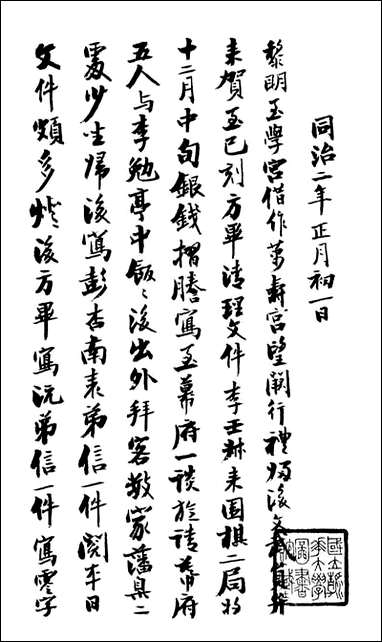 同治二年正月初一日
黎明至學宮借作萬壽宮望闕行禮歸後文武員弁
來賀至巳刻方畢清理文件李壬叔來圍棋二局將
十二月中旬銀錢摺謄寫至幕府一談旋請幕府
五人与李勉亭中飯〻後出外拜客數家藩臬二
處少坐歸後寫彭杏南表弟信一件閱本日
文件頗多燈後方畢寫沅弟信一件寫零字